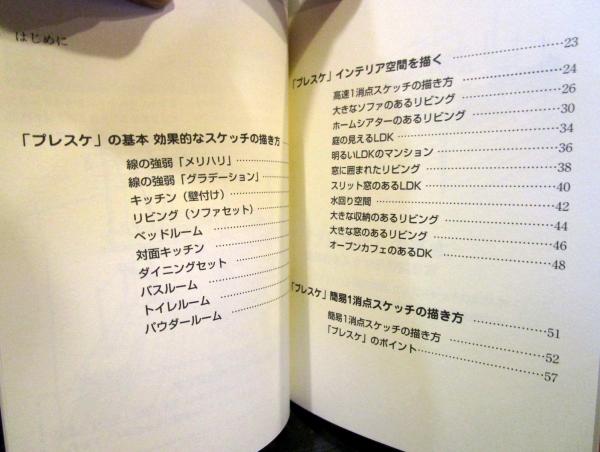 はじめに
「プレスケ」の基本 効果的なスケッチの描き方
線の強弱「メリハリ」
線の強弱「グラデーション」
キッチン（壁付け）
リビング（ソファセット）
ベッドルーム
対面キッチン
ダイニングセット
バスルーム
トイレルーム
パウダールーム
「プレスケ」インテリア空間を描く 23
高速1消点スケッチの描き方 24
大きなソファのあるリビング 26
ホームシアターのあるリビング 30
庭の見えるLDK 34
明るいLDKのマンション 36
窓に囲まれたリビング 38
スリット窓のあるLDK 40
水回り空間 42
大きな収納のあるリビング 44
大きな窓のあるリビング 46
オープンカフェのあるDK 48
「プレスケ」簡易1消点スケッチの描き方 51
簡易1消点スケッチの描き方 52
「プレスケ」のポイント 57